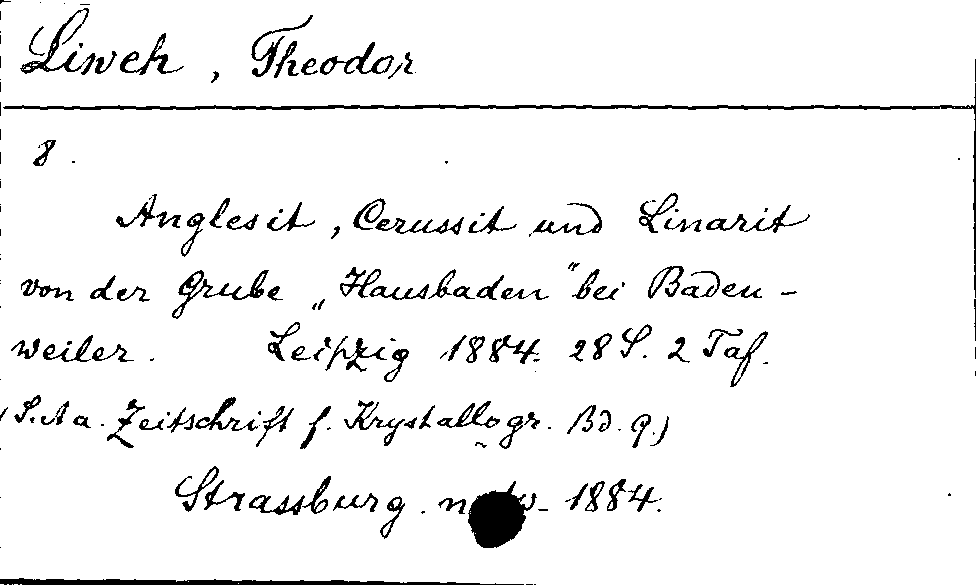 Liweh, Theodor
8.
Anglesit, Cerussit und Linarit
von der Grube „Hausbaden" bei Baden-
weiler. Leipzig 1884. 28 S. 2 Taf.
(S. A a. Zeitschrift f. Krystallogr. Bd. 9.)
Strassburg. 1884.